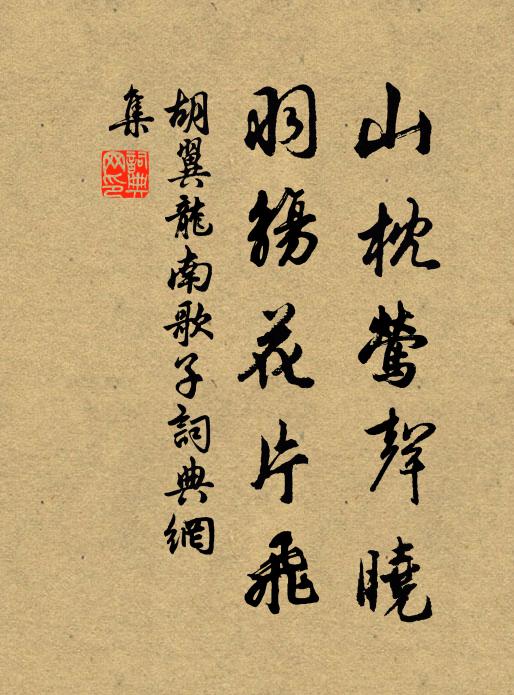 山枕鶯聲曉
羽觴花片飛
胡翼龍南歌子詞典網
集
詞典
网印